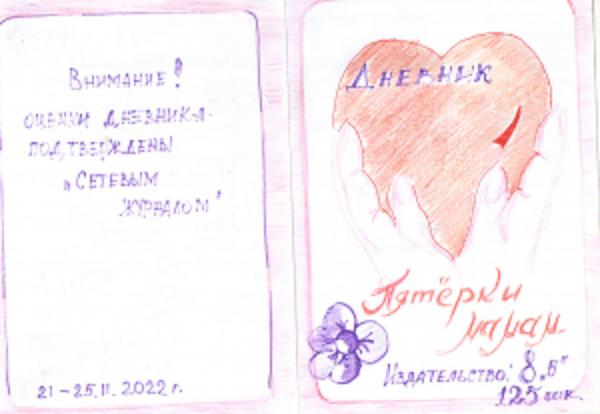 Внимание!
оценки дневника-
подтверждены
„Сетевым
журналом"
21-25.11.2022г.
Дневник
Пятёрки
мамам
Издательство: 8„Б"
125 шк.